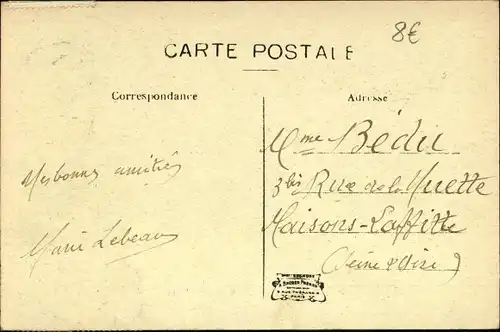 8€
CARTE POSTALE
Correspondance
Adresse
Mes bonnes amitiés
Marie Lebeau
Mme Bédu
3bis Rue de la Muette
Maisons-Laffitte
(Seine & Oise)
PARIS